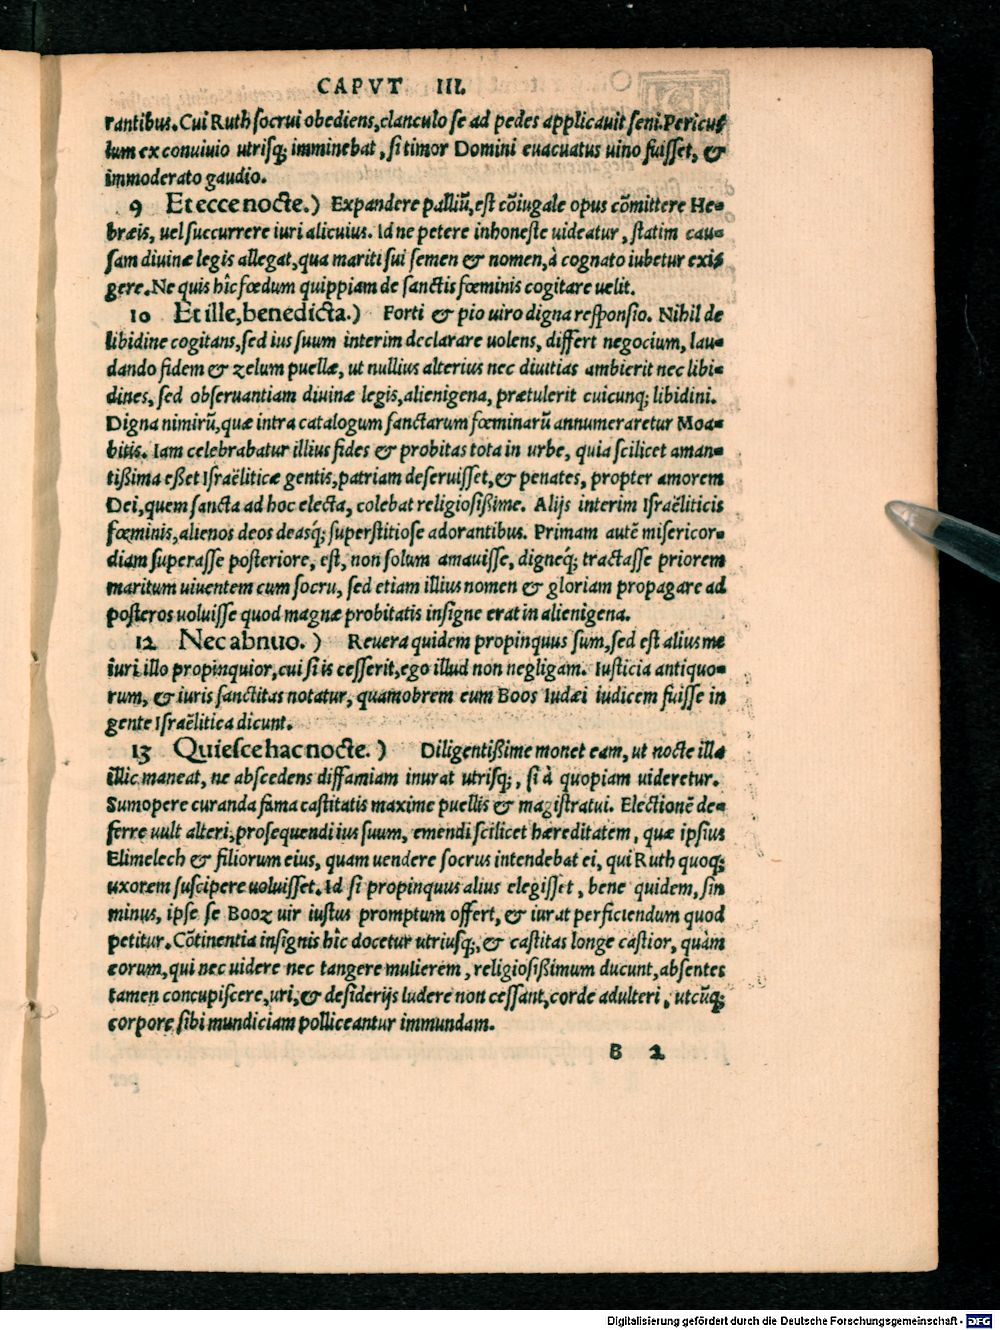 CAPVT III.
rantibus. Cui Ruth socrui obediens, clanculo se ad pedes applicauit seni. Pericu⸗
lum ex conuiuio utrisq; imminebat, si timor Domini euacuatus uino fuisset, &
immoderato gaudio.
9 Et ecce nocte.) Expandere palliũ, est cõiugale opus cõmittere He⸗
bræis, uel succurrere iuri alicuius. Id ne petere inhoneste uideatur, statim cau⸗
sam diuinæ legis allegat, qua mariti sui semen & nomen, à cognato iubetur exi⸗
gere. Ne quis hîc fœdum quippiam de sanctis fœminis cogitare uelit.
10 Et ille, benedicta.) Forti & pio uiro digna responsio. Nihil de
libidine cogitans, sed ius suum interim declarare uolens, differt negocium, lau⸗
dando fidem & zelum puellæ, ut nullius alterius nec diuitias ambierit nec libi⸗
dines, sed obseruantiam diuinæ legis, alienigena, prætulerit cuicunq; libidini.
Digna nimirũ, quæ intra catalogum sanctarum fœminarũ annumeraretur Moa⸗
bitis. Iam celebrabatur illius fides & probitas tota in urbe, quia scilicet aman⸗
tißima eßet Israëliticæ gentis, patriam deseruisset, & penates, propter amorem
Dei, quem sancta ad hoc electa, colebat religiosißime. Alijs interim Israëliticis
fœminis, alienos deos deasq́; superstitiose adorantibus. Primam autẽ misericor⸗
diam superasse posteriore, est, non solum amauisse, digneq́; tractasse priorem
maritum uiuentem cum socru, sed etiam illius nomen & gloriam propagare ad
posteros uoluisse quod magnæ probitatis insigne erat in alienigena.
12 Nec abnuo.) Reuera quidem propinquus sum, sed est alius me
iuri illo propinquior, cui si is cesserit, ego illud non negligam. Iusticia antiquo⸗
rum, & iuris sanctitas notatur, quamobrem eum Boos Iudæi iudicem fuisse in
gente Israëlitica dicunt.
13 Quiesce hac nocte.) Diligentißime monet eam, ut nocte illa
illic maneat, ne abscedens diffamiam inurat utrisq;, si à quopiam uideretur.
Sumopere curanda fama castitatis maxime puellis & magistratui. Electionẽ de⸗
ferre uult alteri, prosequendi ius suum, emendi scilicet hæreditatem, quæ ipsius
Elimelech & filiorum eius, quam uendere socrus intendebat ei, qui Ruth quoq;
uxorem suscipere uoluisset. Id si propinquus alius elegisset, bene quidem, sin
minus, ipse se Booz uir iustus promptum offert, & iurat perficiendum quod
petitur. Cõtinentia insignis hîc docetur utriusq;, & castitas longe castior, quàm
eorum, qui nec uidere nec tangere mulierem, religiosißimum ducunt, absentes
tamen concupiscere, uri, & desiderijs ludere non cessant, corde adulteri, utcũq;
corpore sibi mundiciam polliceantur immundam.
B 2
Digitalisierung gefördert durch die Deutsche Forschungsgemeinschaft - DFG